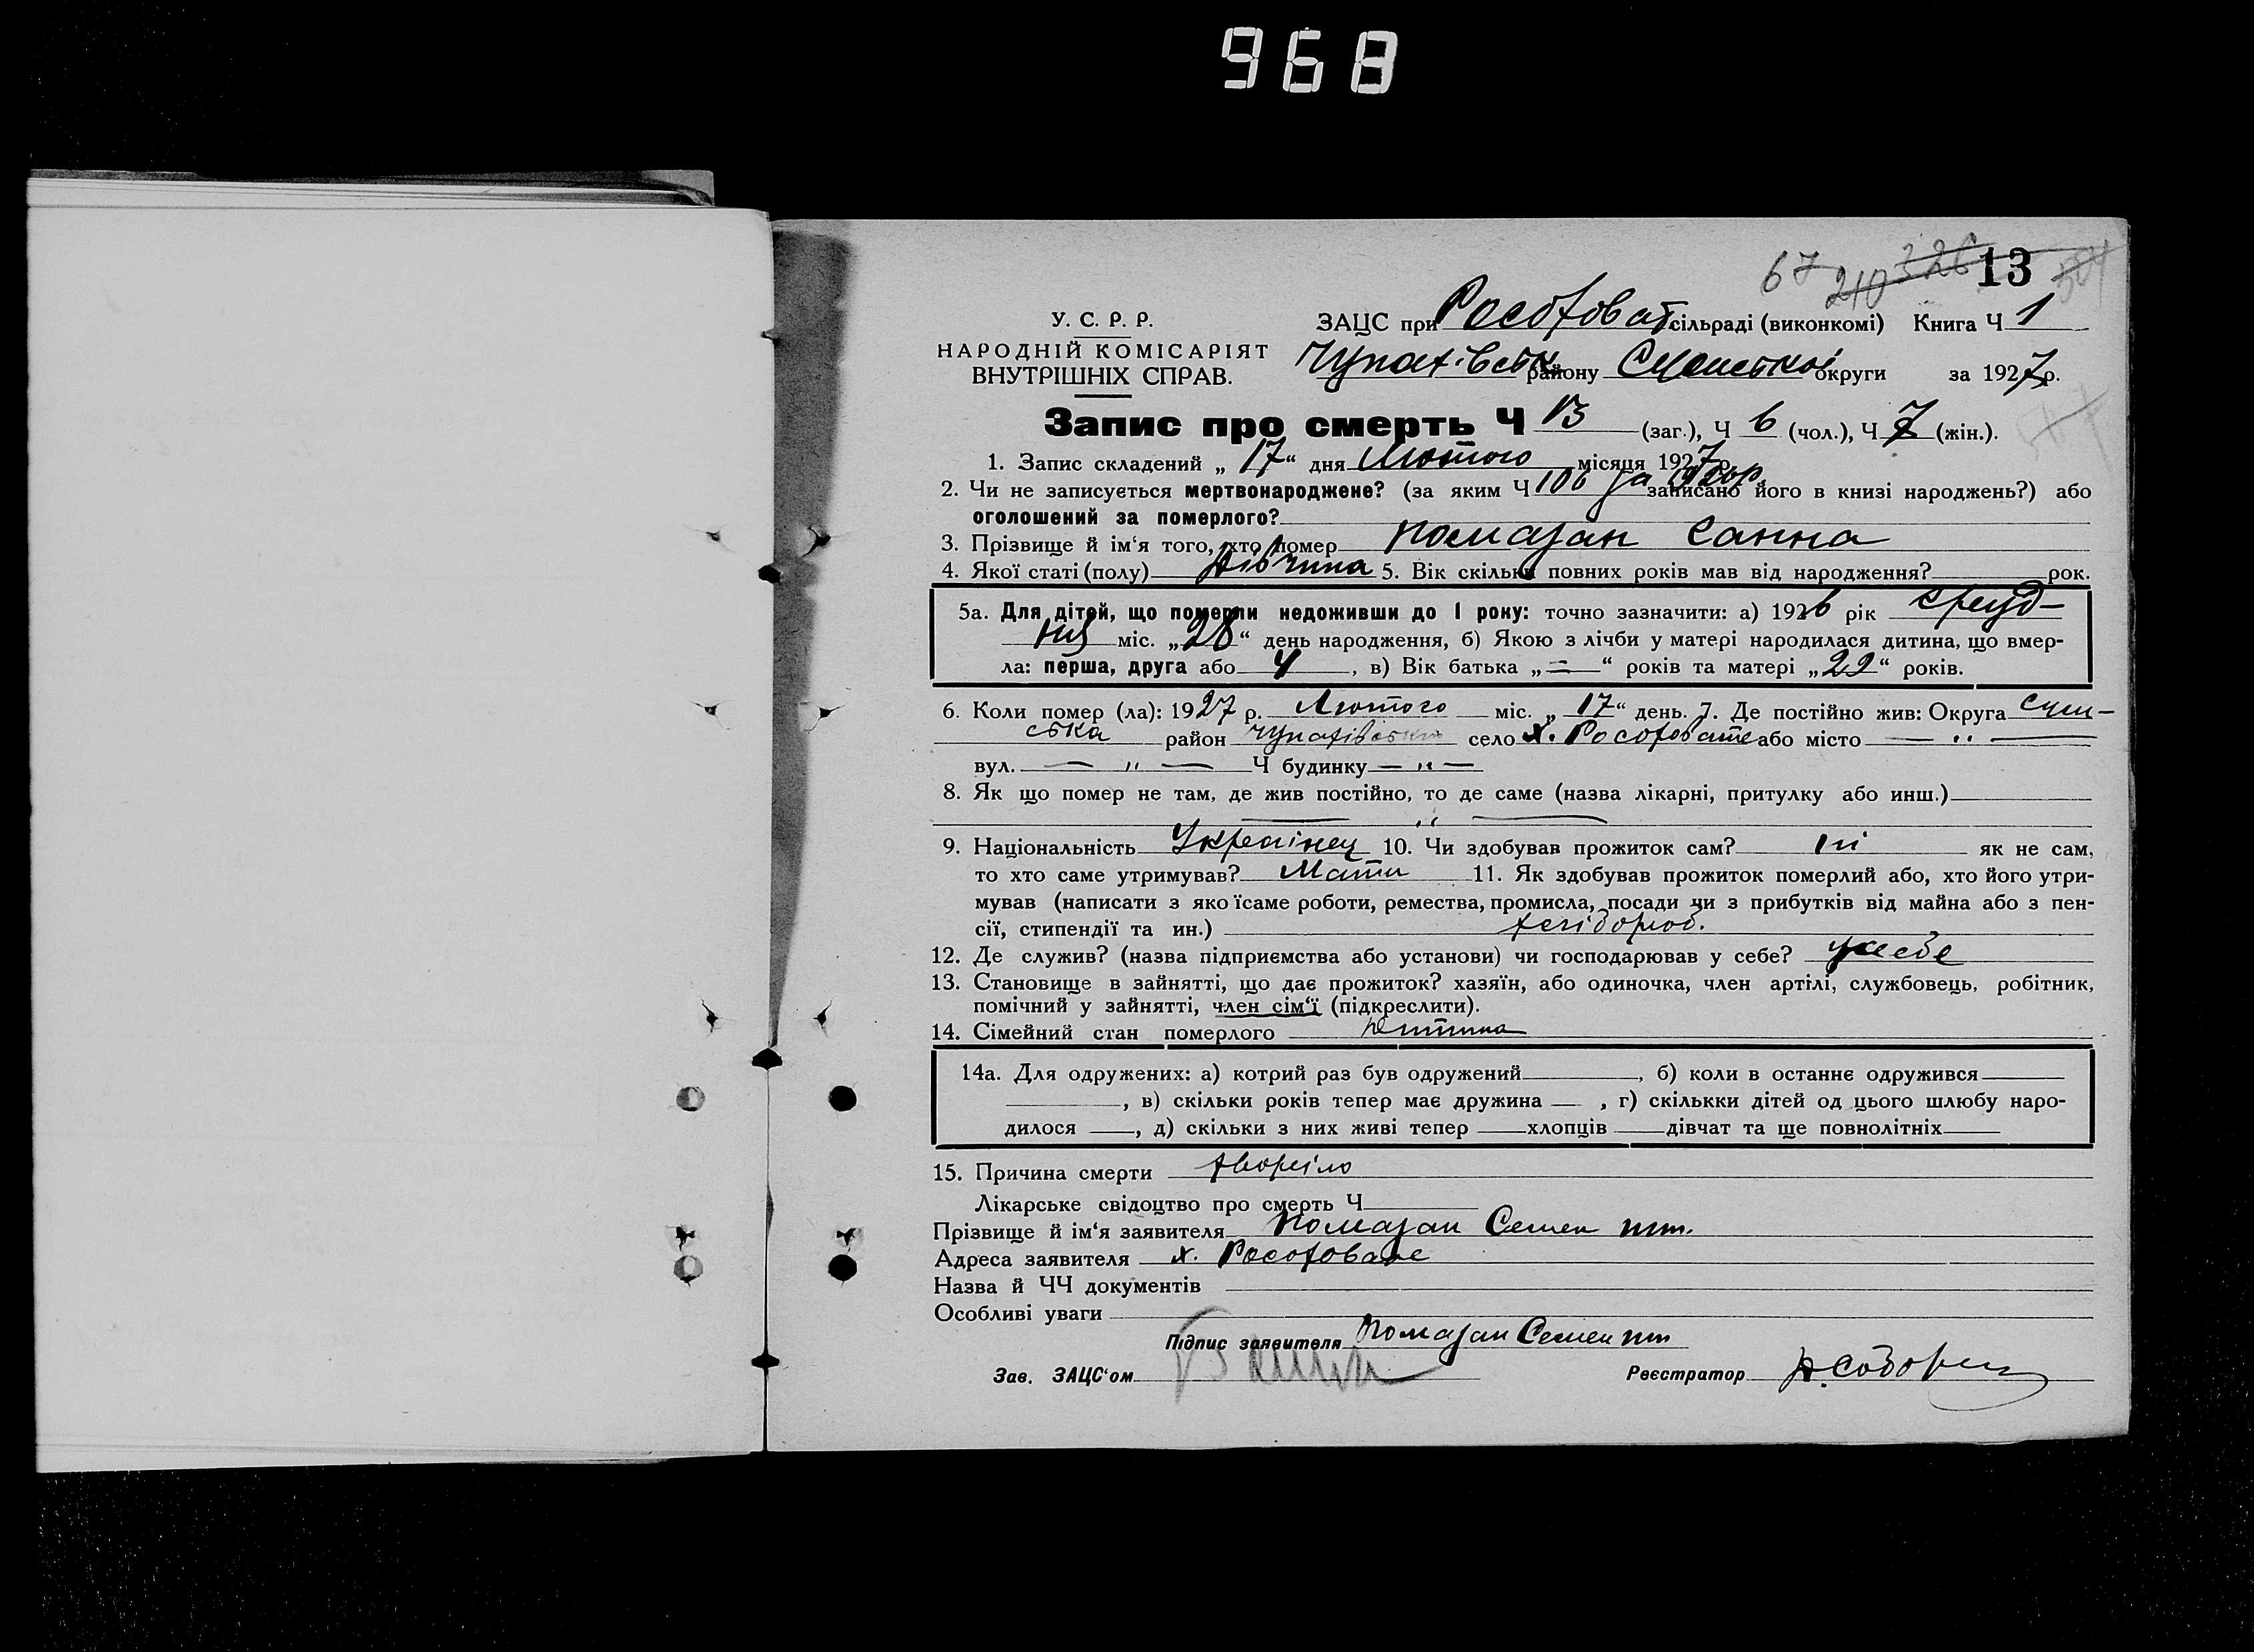 968
67 210 326 13
У. С. Р. Р.
НАРОДНІЙ КОМІСАРІЯТ
ВНУТРІШНІХ СПРАВ.
ЗАЦС при Росоховат сільраді (виконкомі) Книга Ч 1
Чупахівськ району Сумської округи за 1927 р.
Запис про смерть Ч 13 (заг.), Ч 6 (чол.), Ч 7 (жін.).
1. Запис складений „ 17 “ дня Лютого місяця 1927 р.
2. Чи не записується мертвонароджене? (за яким Ч 106 за записано його в книзі народжень?) або
оголошений за померлого?
3. Прізвище й ім‘я того, хто помер Помазан Ганна
4. Якої статі (полу) Дівчина 5. Вік скільки повних років мав від народження? рок.
5а. Для дітей, що померли недоживши до 1 року: точно зазначити: а) 1926 рік Груд-
ня міс. „ 28 “ день народження, б) Якою з лічби у матері народилася дитина, що вмер-
ла: перша, друга або 4 , в) Вік батька „ = “ років та матері „ 22 “ років.
6. Коли помер (ла): 1927 р. Лютого міс. „ 17 “ день. 7. Де постійно жив: Округа Сум-
ська район Чупахівський село х. Росоховате або місто — „ —
вул. — „ — Ч будинку — „ —
8. Як що помер не там, де жив постійно, то де саме (назва лікарні, притулку або инш.)
— „ —
9. Національність Українец 10. Чи здобував прожиток сам? ні як не сам,
то хто саме утримував? Мати 11. Як здобував прожиток померлий або, хто його утри-
мував (написати з яко їсаме роботи, ремества, промисла, посади чи з прибутків від майна або з пен-
сії, стипендії та ин.) хлібороб.
12. Де служив? (назва підприємства або установи) чи господарював у себе? усебе
13. Становище в зайнятті, що дає прожиток? хазяїн, або одиночка, член артілі, службовець, робітник,
помічний у зайнятті, член сім‘ї (підкреслити).
14. Сімейний стан померлого детина
14а. Для одружених: а) котрий раз був одружений , б) коли в останнє одружився
, в) скільки років тепер має дружина , г) скількки дітей од цього шлюбу наро-
дилося , д) скільки з них живі тепер хлопців дівчат та ще повнолітніх
15. Причина смерти хворіло
Лікарське свідоцтво про смерть Ч
Прізвище й ім‘я заявителя Помазан Семен
Адреса заявителя х. Росоховате
Назва й ЧЧ документів
Особливі уваги
Підпис заявителя Помазан Семен
Зав. ЗАЦС‘ом
Реєстратор